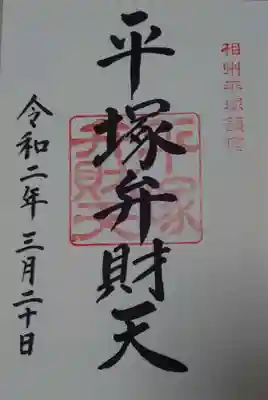 相州平塚鎮座
平塚弁財天
令和二年 三月二十日
平塚
弁財天